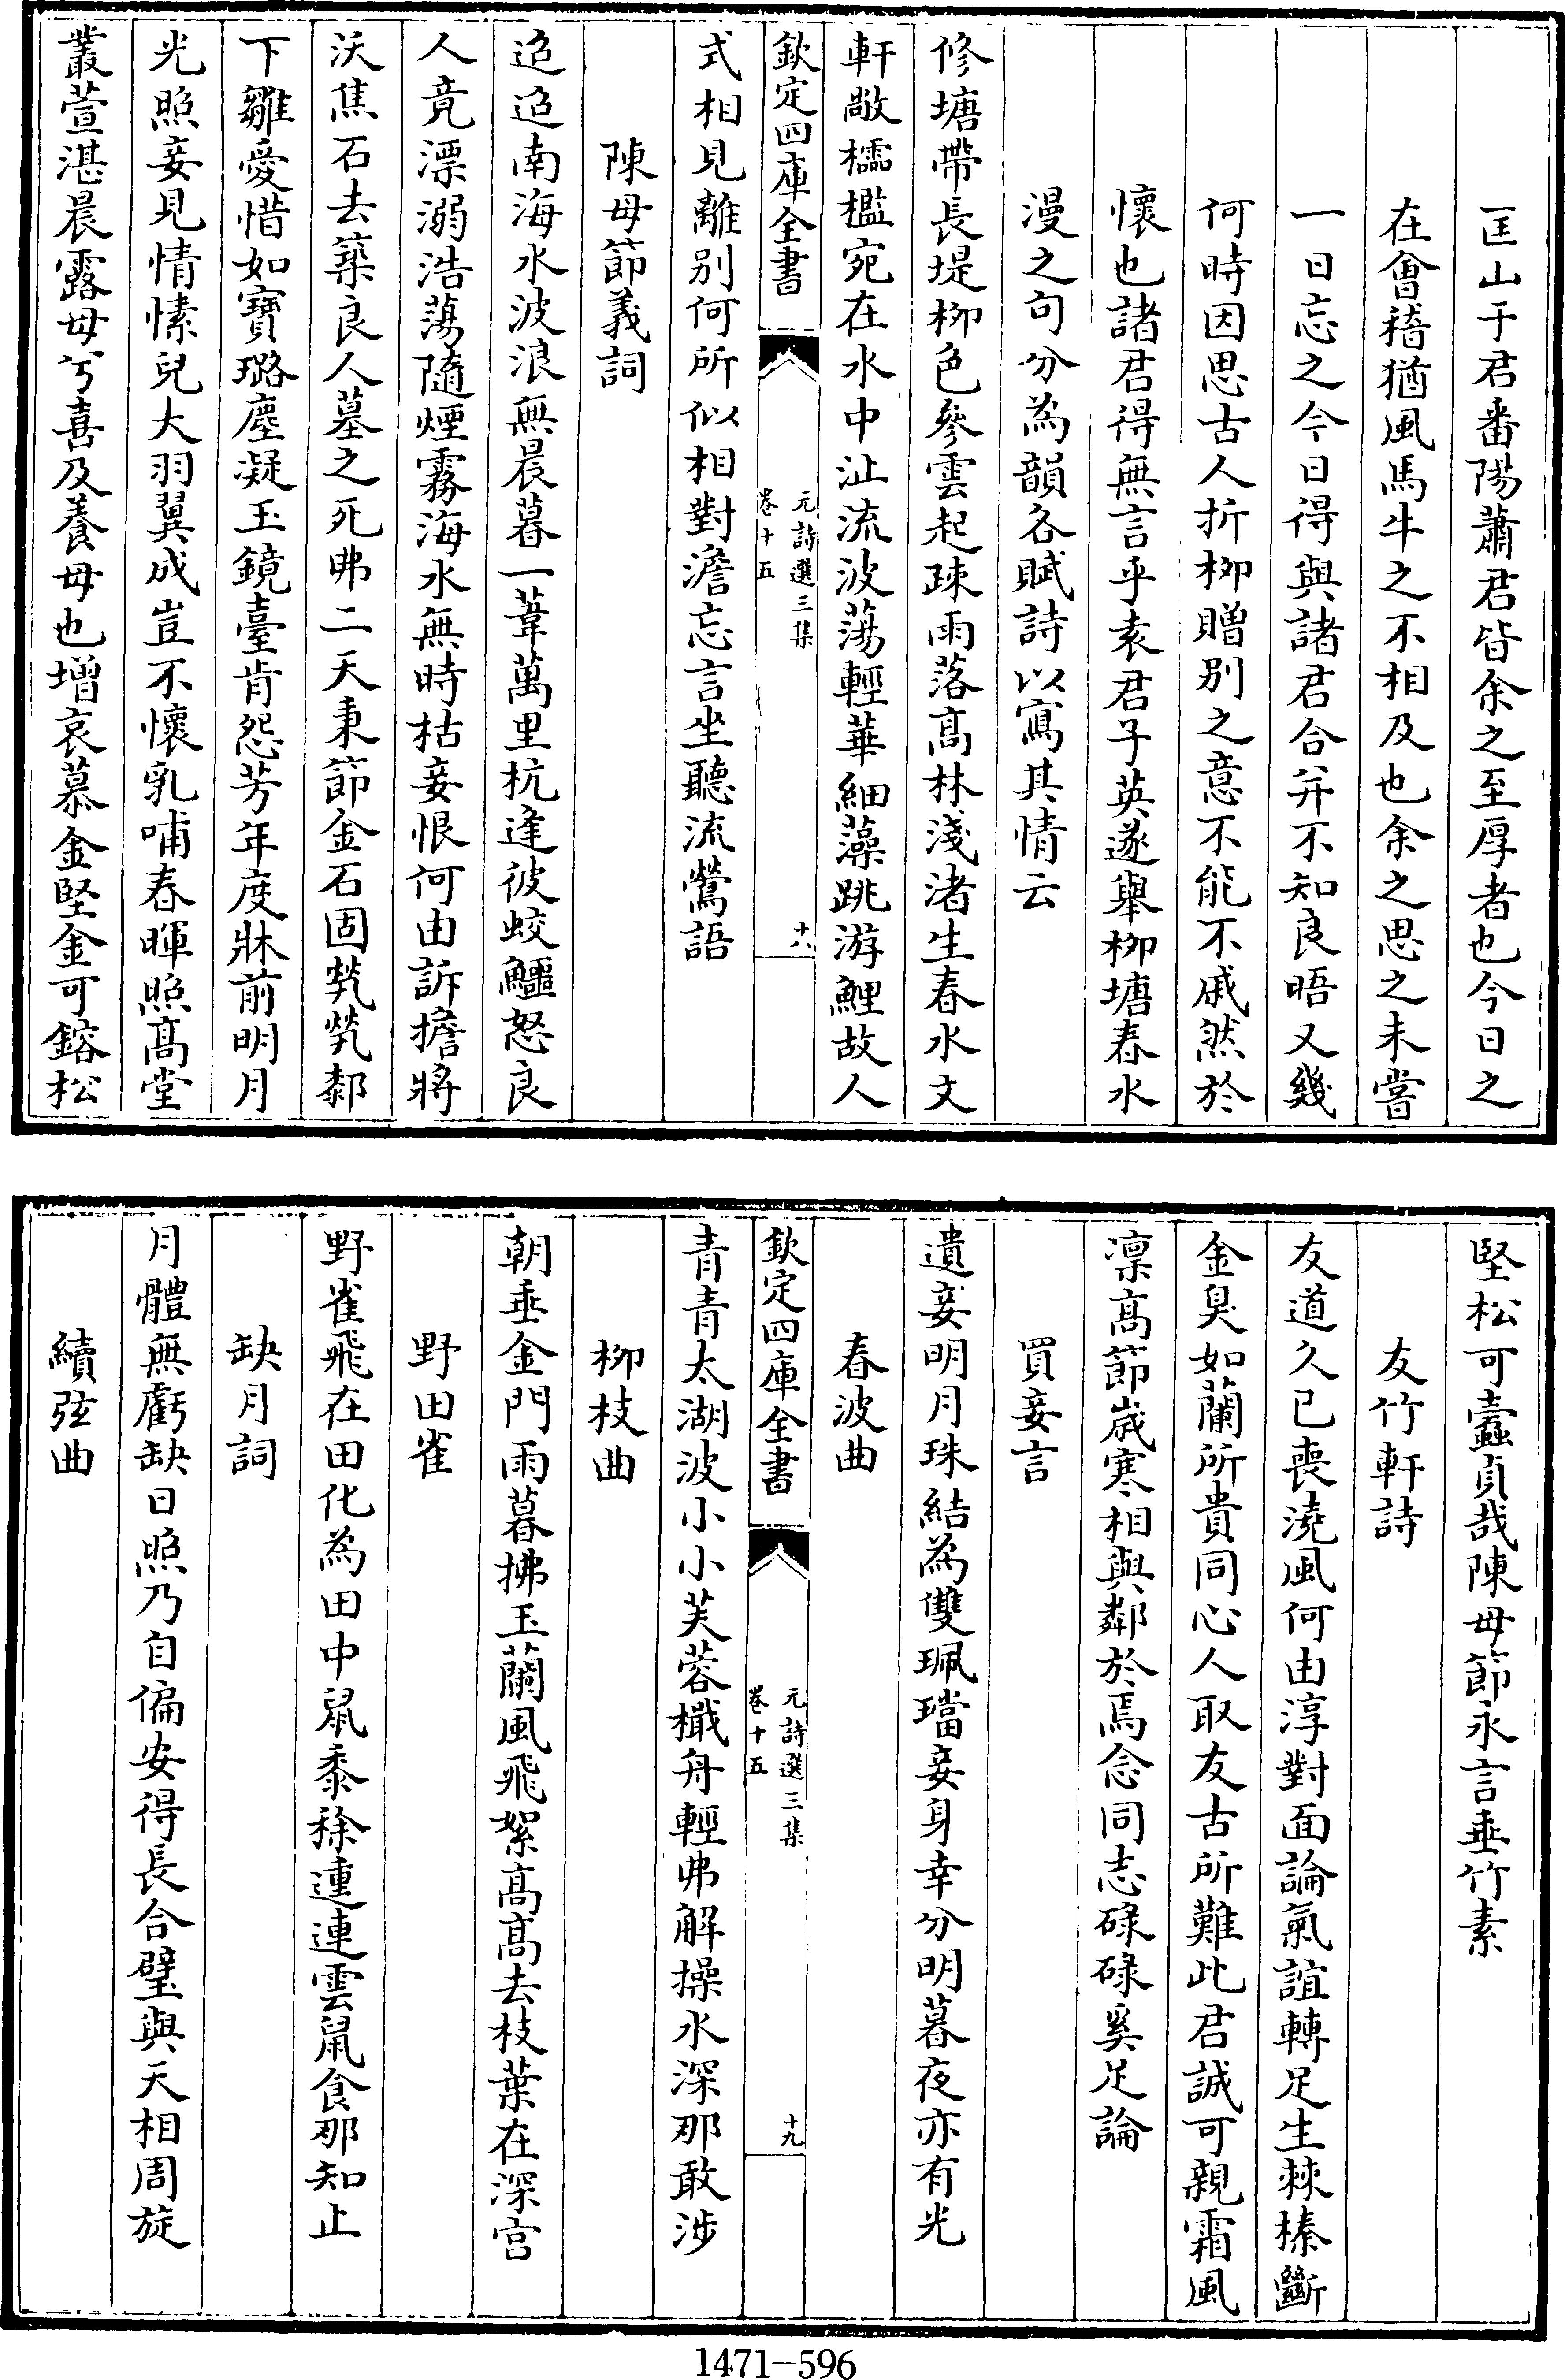 匡山于君番陽蕭君皆余之至厚者也今日之
在會稽猶風馬牛之不相及也余之思之未嘗
一日忘之今日得與諸君合并不知良晤又幾
何時因思古人折栁贈別之意不能不戚然於
懷也諸君得無言乎袁君子英遂舉栁塘春水
漫之句分為韻各賦詩以寫其情云
修塘帶長堤栁色參雲起疎雨落髙林淺渚生春水文
軒敞櫺檻宛在水中沚流波蕩輕華細藻跳游鯉故人
欽定四庫全書
元詩選三集
卷十五
十八
式相見離別何所似相對澹忘言坐聽流鶯語
陳母節義詞
迢迢南海水波浪無晨暮一葦萬里杭逢彼蛟鱷怒良
人竟漂溺浩蕩隨煙霧海水無時枯妾恨何由訴擔將
沃焦石去築良人墓之死弗二天秉節金石固煢煢郗
下雛愛惜如寶璐塵凝玉鏡臺肯怨芳年度牀前明月
光照妾見情愫兒大羽翼成豈不懷乳哺春暉照髙堂
叢萱湛晨露母兮喜及養母也增哀慕金堅金可鎔松
堅松可蠹貞哉陳母節永言垂竹素
友竹軒詩
友道久已喪澆風何由淳對面論氣誼轉足生棘榛斷
金臭如蘭所貴同心人取友古所難此君誠可親霜風
凜髙節歳寒相與鄰於焉念同志碌碌奚足論
買妾言
遺妾明月珠結為雙珮璫妾身幸分明暮夜亦有光
春波曲
欽定四庫全書
元詩選三集
卷十五
十九
青青太湖波小小芙蓉檝舟輕弗解操水深那敢涉
栁枝曲
朝垂金門雨暮拂玉蘭風飛絮髙髙去枝葉在深宫
野田雀
野雀飛在田化為田中鼠黍稌連連雲鼠食那知止
缺月詞
月體無虧缺日照乃自偏安得長合璧與天相周旋
續弦曲
1471-596